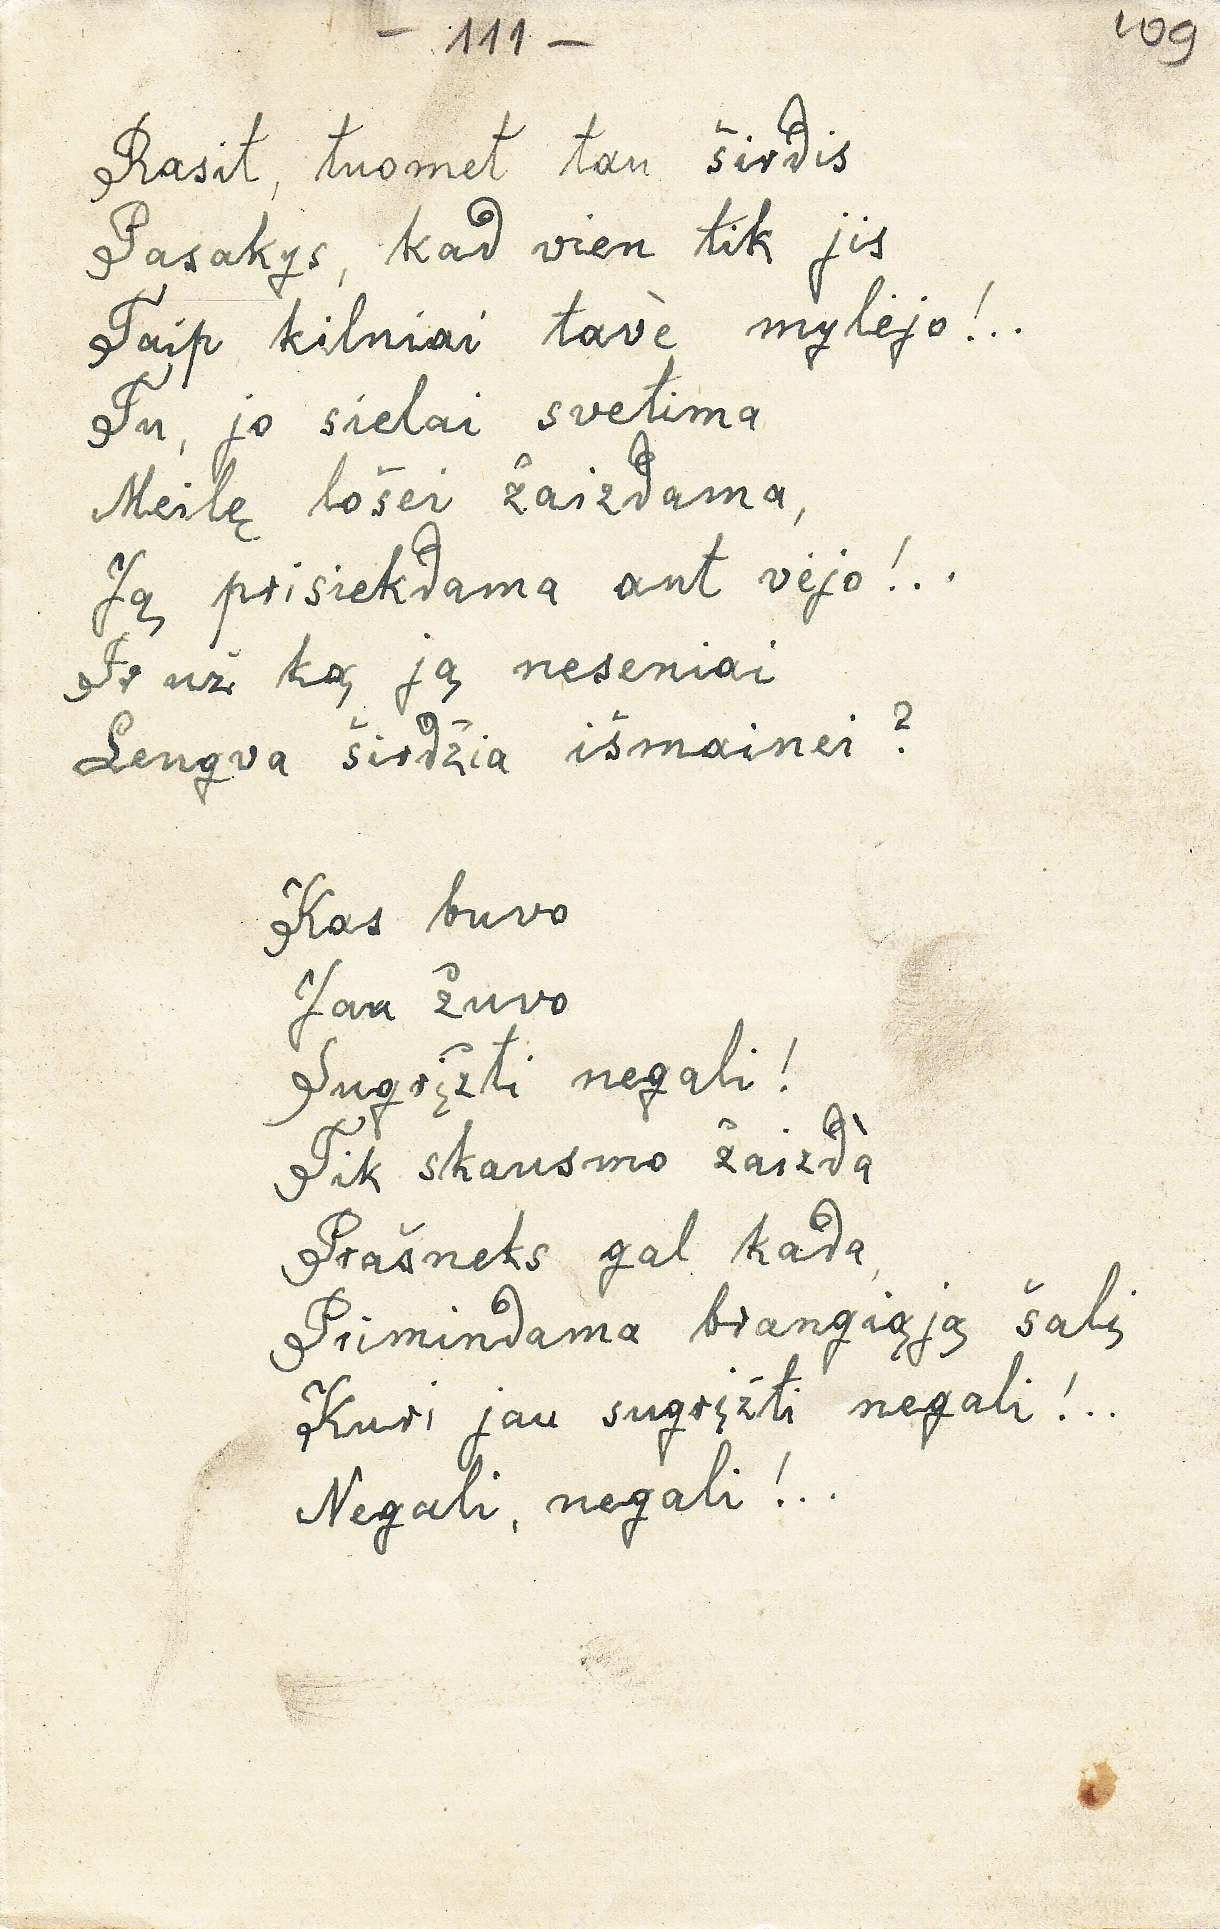 – 111 –
109
Rasit, tuomet tau širdis
Pasakys, kad vien tik jis
Taip kilniai tavè mylėjo!..
Tu, jo sielai svetima
Meilę lošei žaizdama,
Ją prisiekdama ant vėjo!..
Ir už ką ją neseniai
Lengva širdžia išmainei?
Kas buvo
Jau žuvo
Sugrįžti negali!
Tik skausmo žaizdà
Prašneks gal kada,
Primindama brangiąją šalį
Kuri jau sugrįžti negali!..
Negali, negali!...